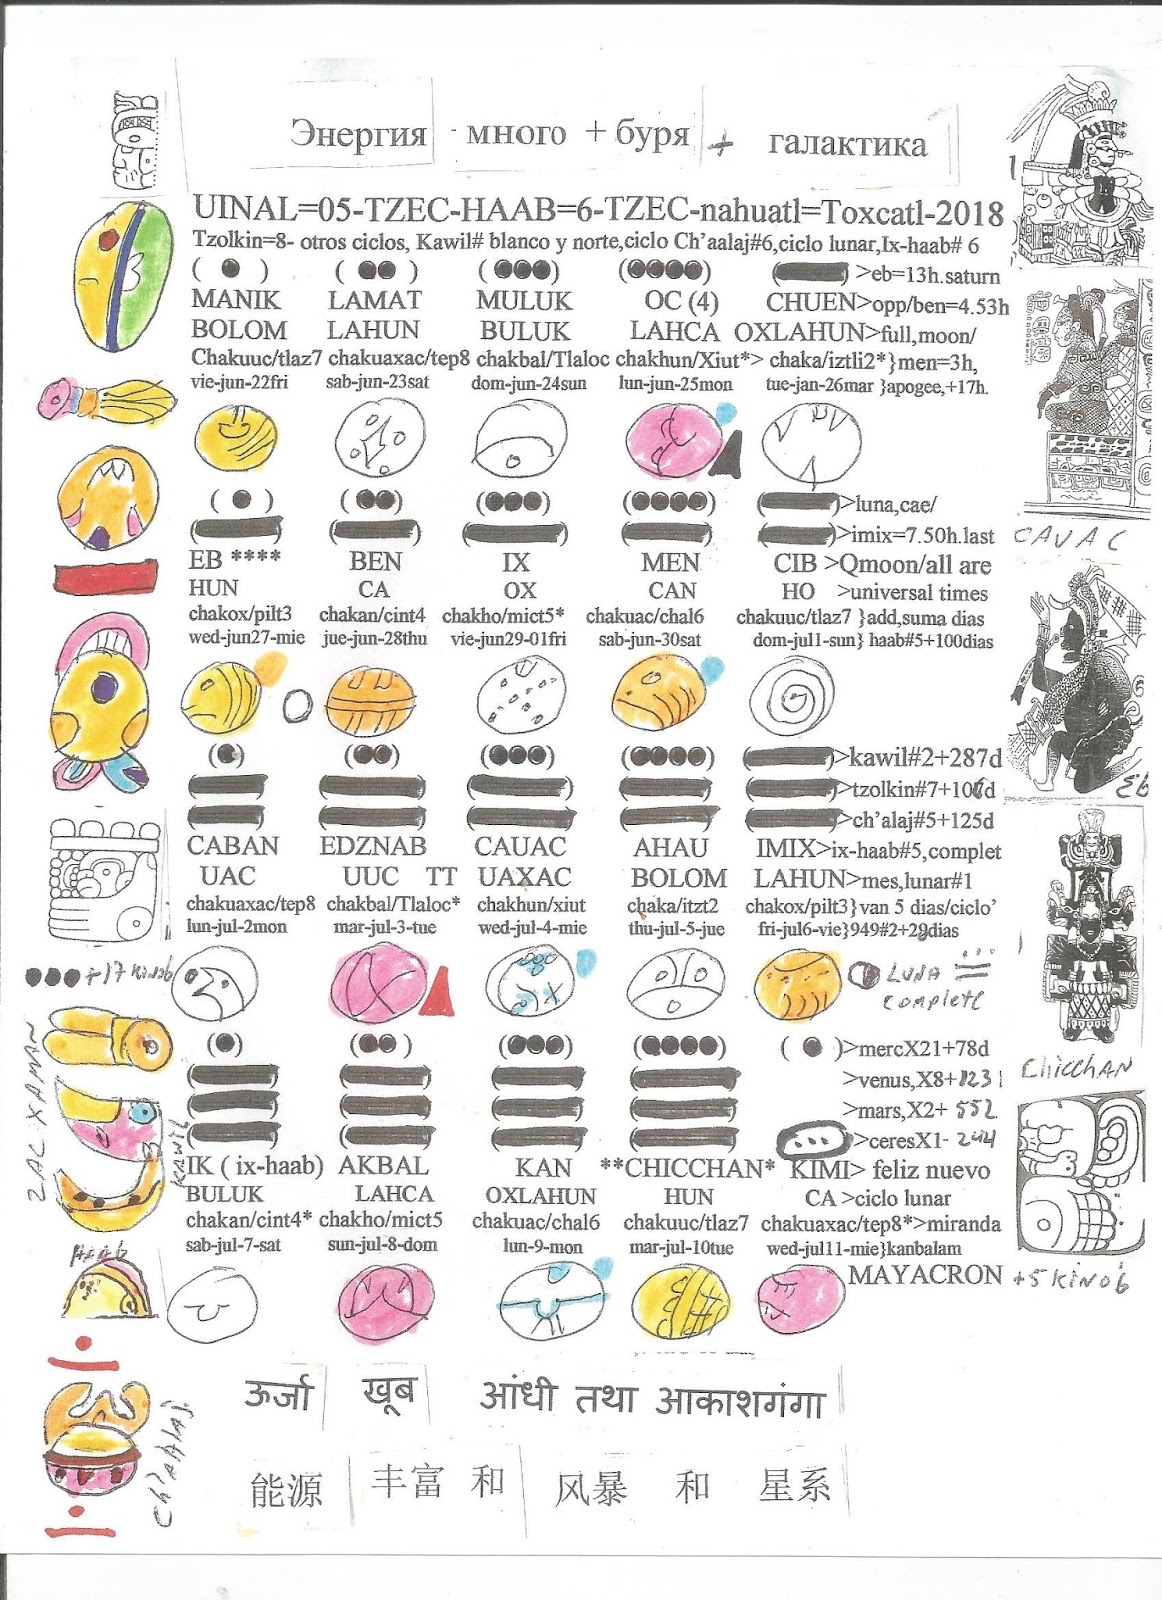 Энергия много + буря + галактика
UINAL=05-TZEC-HAAB=6-TZEC-nahuatl=Toxcatl-2018
Tzolkin=8- otros ciclos, Kawil# blanco y norte,ciclo Ch'aalaj#6,ciclo lunar,Ix-haab# 6
>eb=13h.saturn
MANIK LAMAT MULUK OC (4) CHUEN>opp/ben=4.53h
BOLOM LAHUN BULUK LAHCA OXLAHUN>full,moon/
Chakuuc/tlaz7 chakuaxac/tep8 chakbal/Tlaloc chakhun/Xiut*> chaka/iztli2*}men=3h,
vie-jun-22fri sab-jun-23sat dom-jun-24sun lun-jun-25mon tue-jan-26mar }apogee,+17h.
>luna,cae/
>imix=7.50h.last
CAUAC
EB **** BEN IX MEN CIB >Qmoon/all are
HUN CA OX CAN HO >universal times
chakox/pilt3 chakan/cint4 chakho/mict5* chakuac/chal6 chakuuc/tlaz7 }add,suma dias
wed-jun27-mie jue-jun-28thu vie-jun29-01fri sab-jun-30sat dom-jul1-sun} haab#5+100dias
>kawil#2+287d
>tzolkin#7+106d
Eb
>ch'alaj#5+125d
CABAN EDZNAB CAUAC AHAU IMIX>ix-haab#5,complet
UAC UUC TT UAXAC BOLOM LAHUN>mes,lunar#1
chakuaxac/tep8 chakbal/Tlaloc* chakhun/xiut chaka/itzt2 chakox/pilt3}van 5 dias/ciclo'
lun-jul-2mon mar-jul-3-tue wed-jul-4-mie thu-jul-5-jue fri-jul6-vie}949#2+29dias
+17 KINOB
LUNA
COMPLETE
>mercX21+78d
CHICCHAN
>venus,X8+123
>mars,X2+ 552
>ceresX1- 244
ZAC XAMAN
KAWIL
IK ( ix-haab) AKBAL KAN **CHICCHAN* KIMI> feliz nuevo
BULUK LAHCA OXLAHUN HUN CA >ciclo lunar
chakan/cint4* chakho/mict5 chakuac/chal6 chakuuc/tlaz7 chakuaxac/tep8*>miranda
sab-jul-7-sat sun-jul-8-dom lun-9-mon mar-jul-10tue wed-jul11-mie}kanbalam
HAAB
MAYACRON
+5 KINOB
ऊर्जा खूब आंधी तथा आकाशगंगा
CH'AALAJ
能源 丰富 和 风暴 和 星系